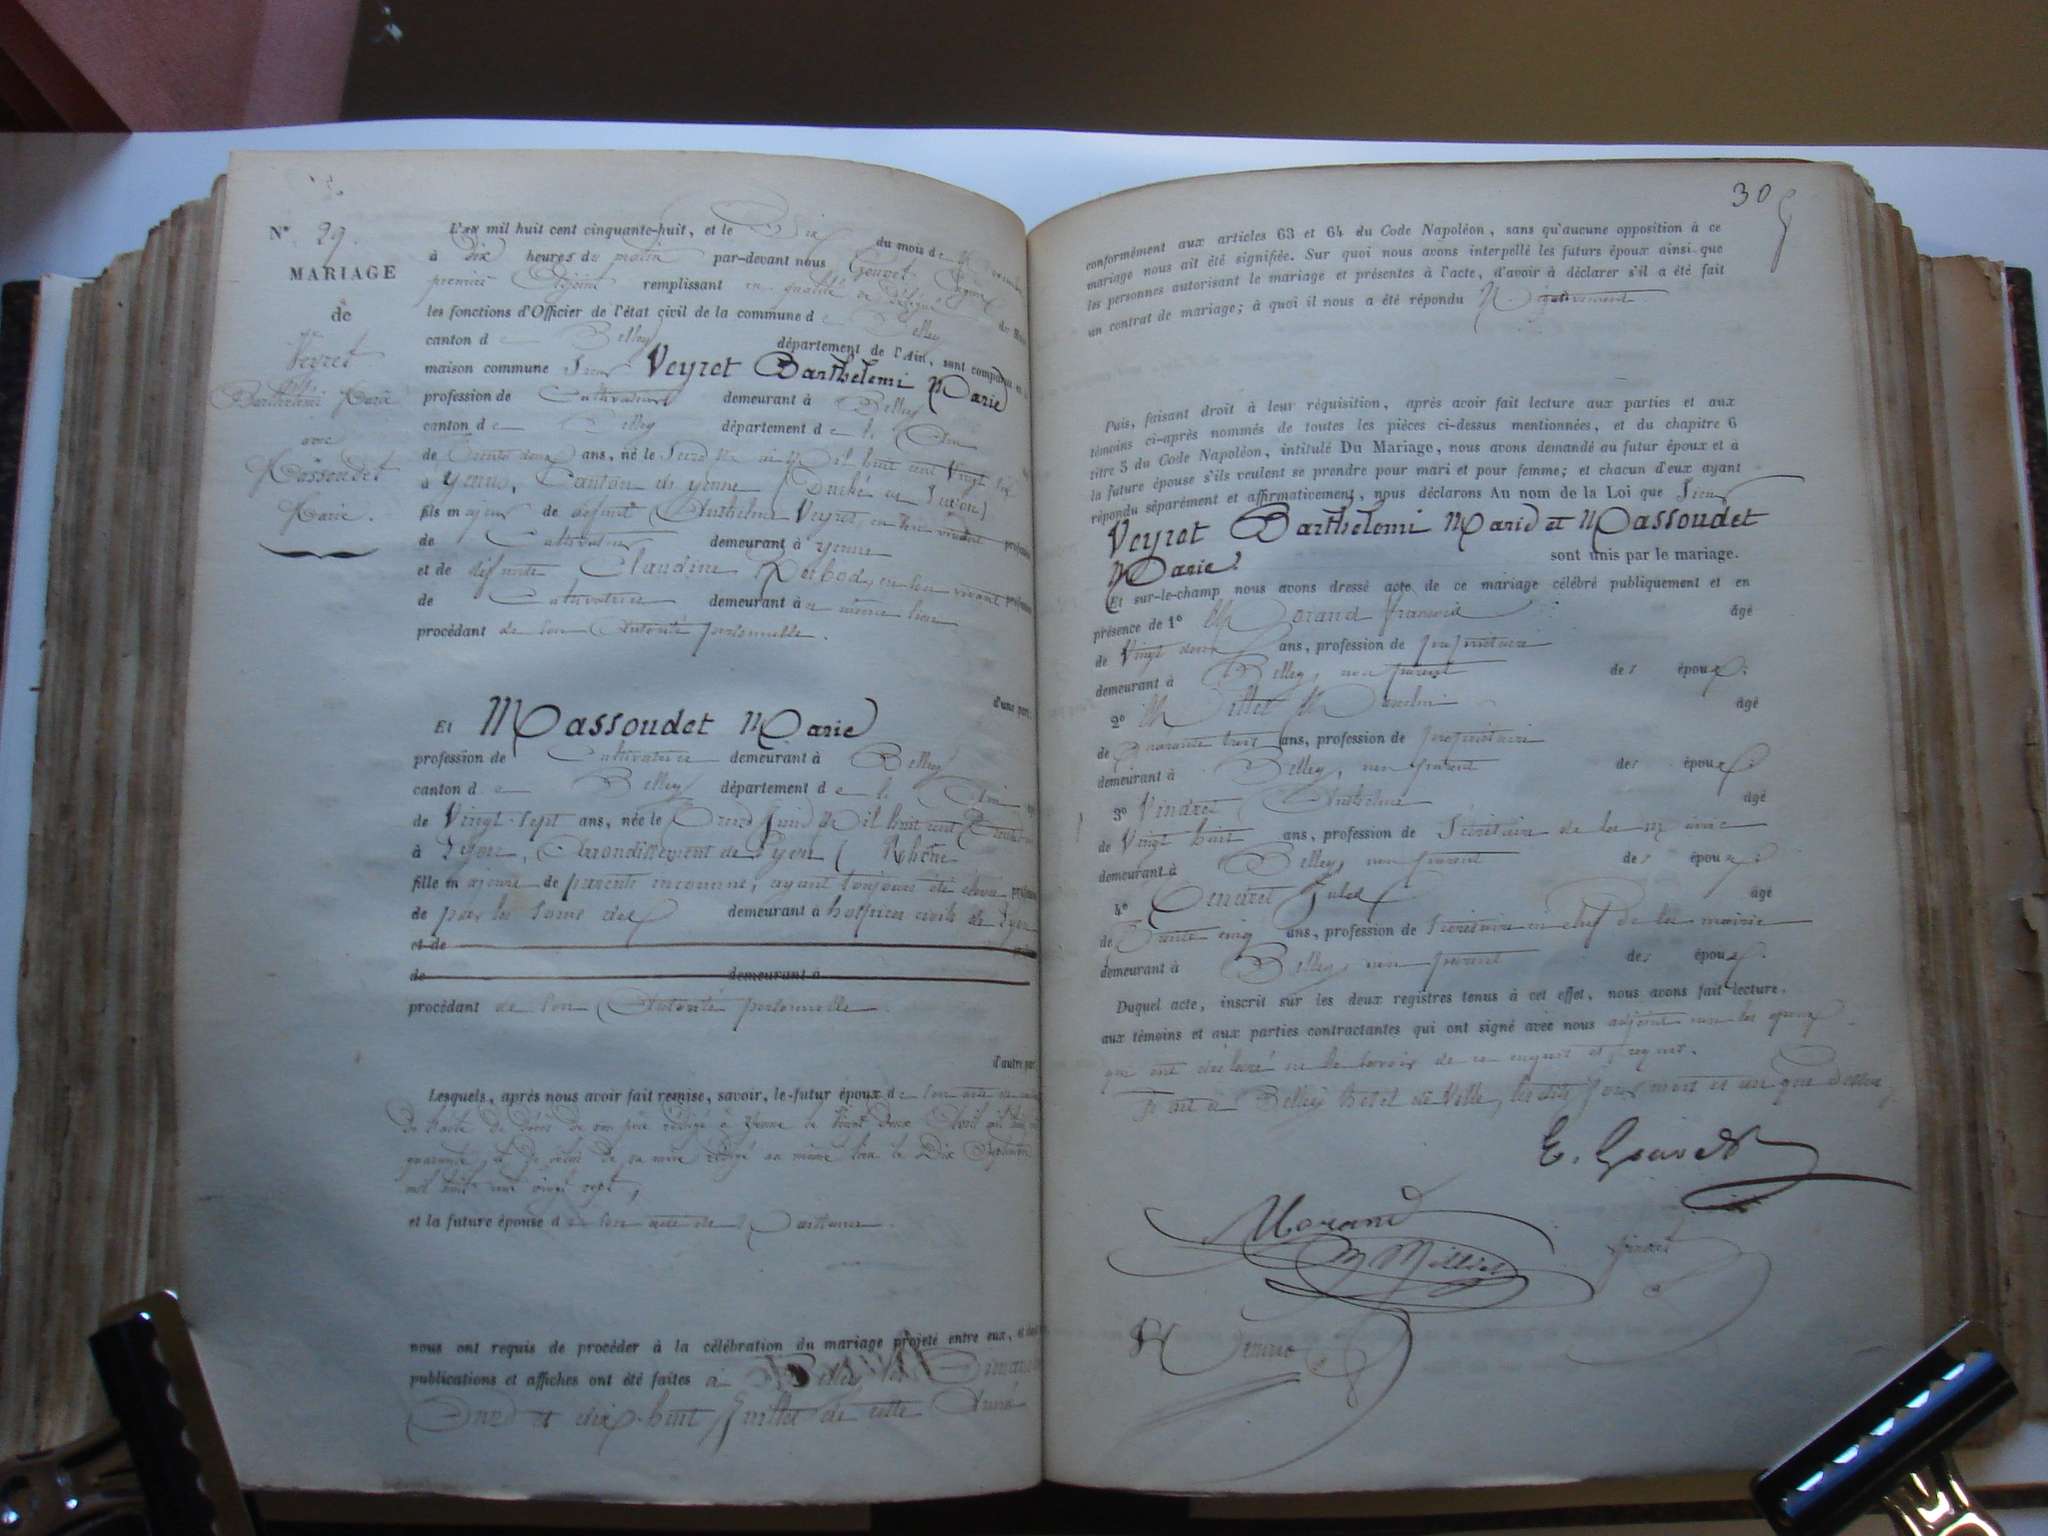 N° 29.
MARIAGE
de
Veyret
Barthelemi Marie
avec
Massoudet
Marie.
L'an mil huit cent cinquante-huit, et le Dix du mois de
à Dix heures du matin par-devant nous
premier Adjoint remplissant en qualité de
les fonctions d'Officier de l'état civil de la commune de Belley
canton de Belley département de l'Ain, sont comparus en la
maison commune Sieur Veyret Barthelemi Marie
profession de Cultivateur demeurant à Belley
canton de Belley département de l'Ain
de Trente deux ans, né le mil huit cent Vingt six
à Yenne, Canton de Yenne (Duché de Savoie)
fils majeur de défunt Anthelme Veyret, en son vivant profession
de Cultivateur demeurant à Yenne
et de défunte Claudine en son vivant profession
de Cultivatrice demeurant à même lieu
procédant de son Autorité personnelle.
d'une part.
Et Massoudet Marie
profession de Cultivatrice demeurant à Belley
canton de Belley département de l'Ain
de Vingt-sept ans, née le Juin Mil huit cent
à Lyon, Arrondissement de Lyon (Rhône
fille majeure de parents inconnus, ayant toujours été profession
de par les soins des demeurant à hospices civils de Lyon
et de
de demeurant à
procédant de son Autorité personnelle.
d'autre part
Lesquels, après nous avoir fait remise, savoir, le futur époux de son acte de
de décès de son père rédigé à Yenne le Vingt deux Avril mil huit
quarante, de celui de sa mère rédigé au même lieu le Dix Septembre
mil huit cent vingt sept,
et la future épouse de son acte de Naissance.
nous ont requis de procéder à la célébration du mariage projeté entre eux, et dont les
publications et affiches ont été faites à Belley les Dimanches
Onze et dix-huit Juillet de cette Année
30
conformément aux articles 63 et 64 du Code Napoléon, sans qu'aucune opposition à ce
mariage nous ait été signifiée. Sur quoi nous avons interpellé les futurs époux ainsi que
les personnes autorisant le mariage et présentes à l'acte, d'avoir à déclarer s'il a été fait
un contrat de mariage; à quoi il nous a été répondu Négativement.
Puis, faisant droit à leur réquisition, après avoir fait lecture aux parties et aux
témoins ci-après nommés de toutes les pièces ci-dessus mentionnées, et du chapitre 6
titre 5 du Code Napoléon, intitulé Du Mariage, nous avons demandé au futur époux et à
la future épouse s'ils veulent se prendre pour mari et pour femme; et chacun d'eux ayant
répondu séparément et affirmativement, nous déclarons Au nom de la Loi que Sieur
Veyret Barthelemi Marie et Massoudet
Marie sont unis par le mariage.
Et sur-le-champ nous avons dressé acte de ce mariage célébré publiquement et en
présence de 1° Morand François âgé
de Vingt deux ans, profession de propriétaire
demeurant à Belley, non parent des époux.
2° Millet âgé
de quarante trois ans, profession de propriétaire
demeurant à Belley, non parent des époux.
3° Vindret Anthelme âgé
de Vingt huit ans, profession de Sécrétaire de la mairie
demeurant à Belley, non parent des époux.
4° Jules âgé
de Trente cinq ans, profession de Sécrétaire en chef de la mairie
demeurant à Belley, non parent des époux.
Duquel acte, inscrit sur les deux registres tenus à cet effet, nous avons fait lecture
aux témoins et aux parties contractantes qui ont signé avec nous adjoint non les époux
qui ont déclaré ne le savoir de ce enquis et requis.
Fait à Belley hotel de Ville, les dits jour, mois et an que dessus.
Morand